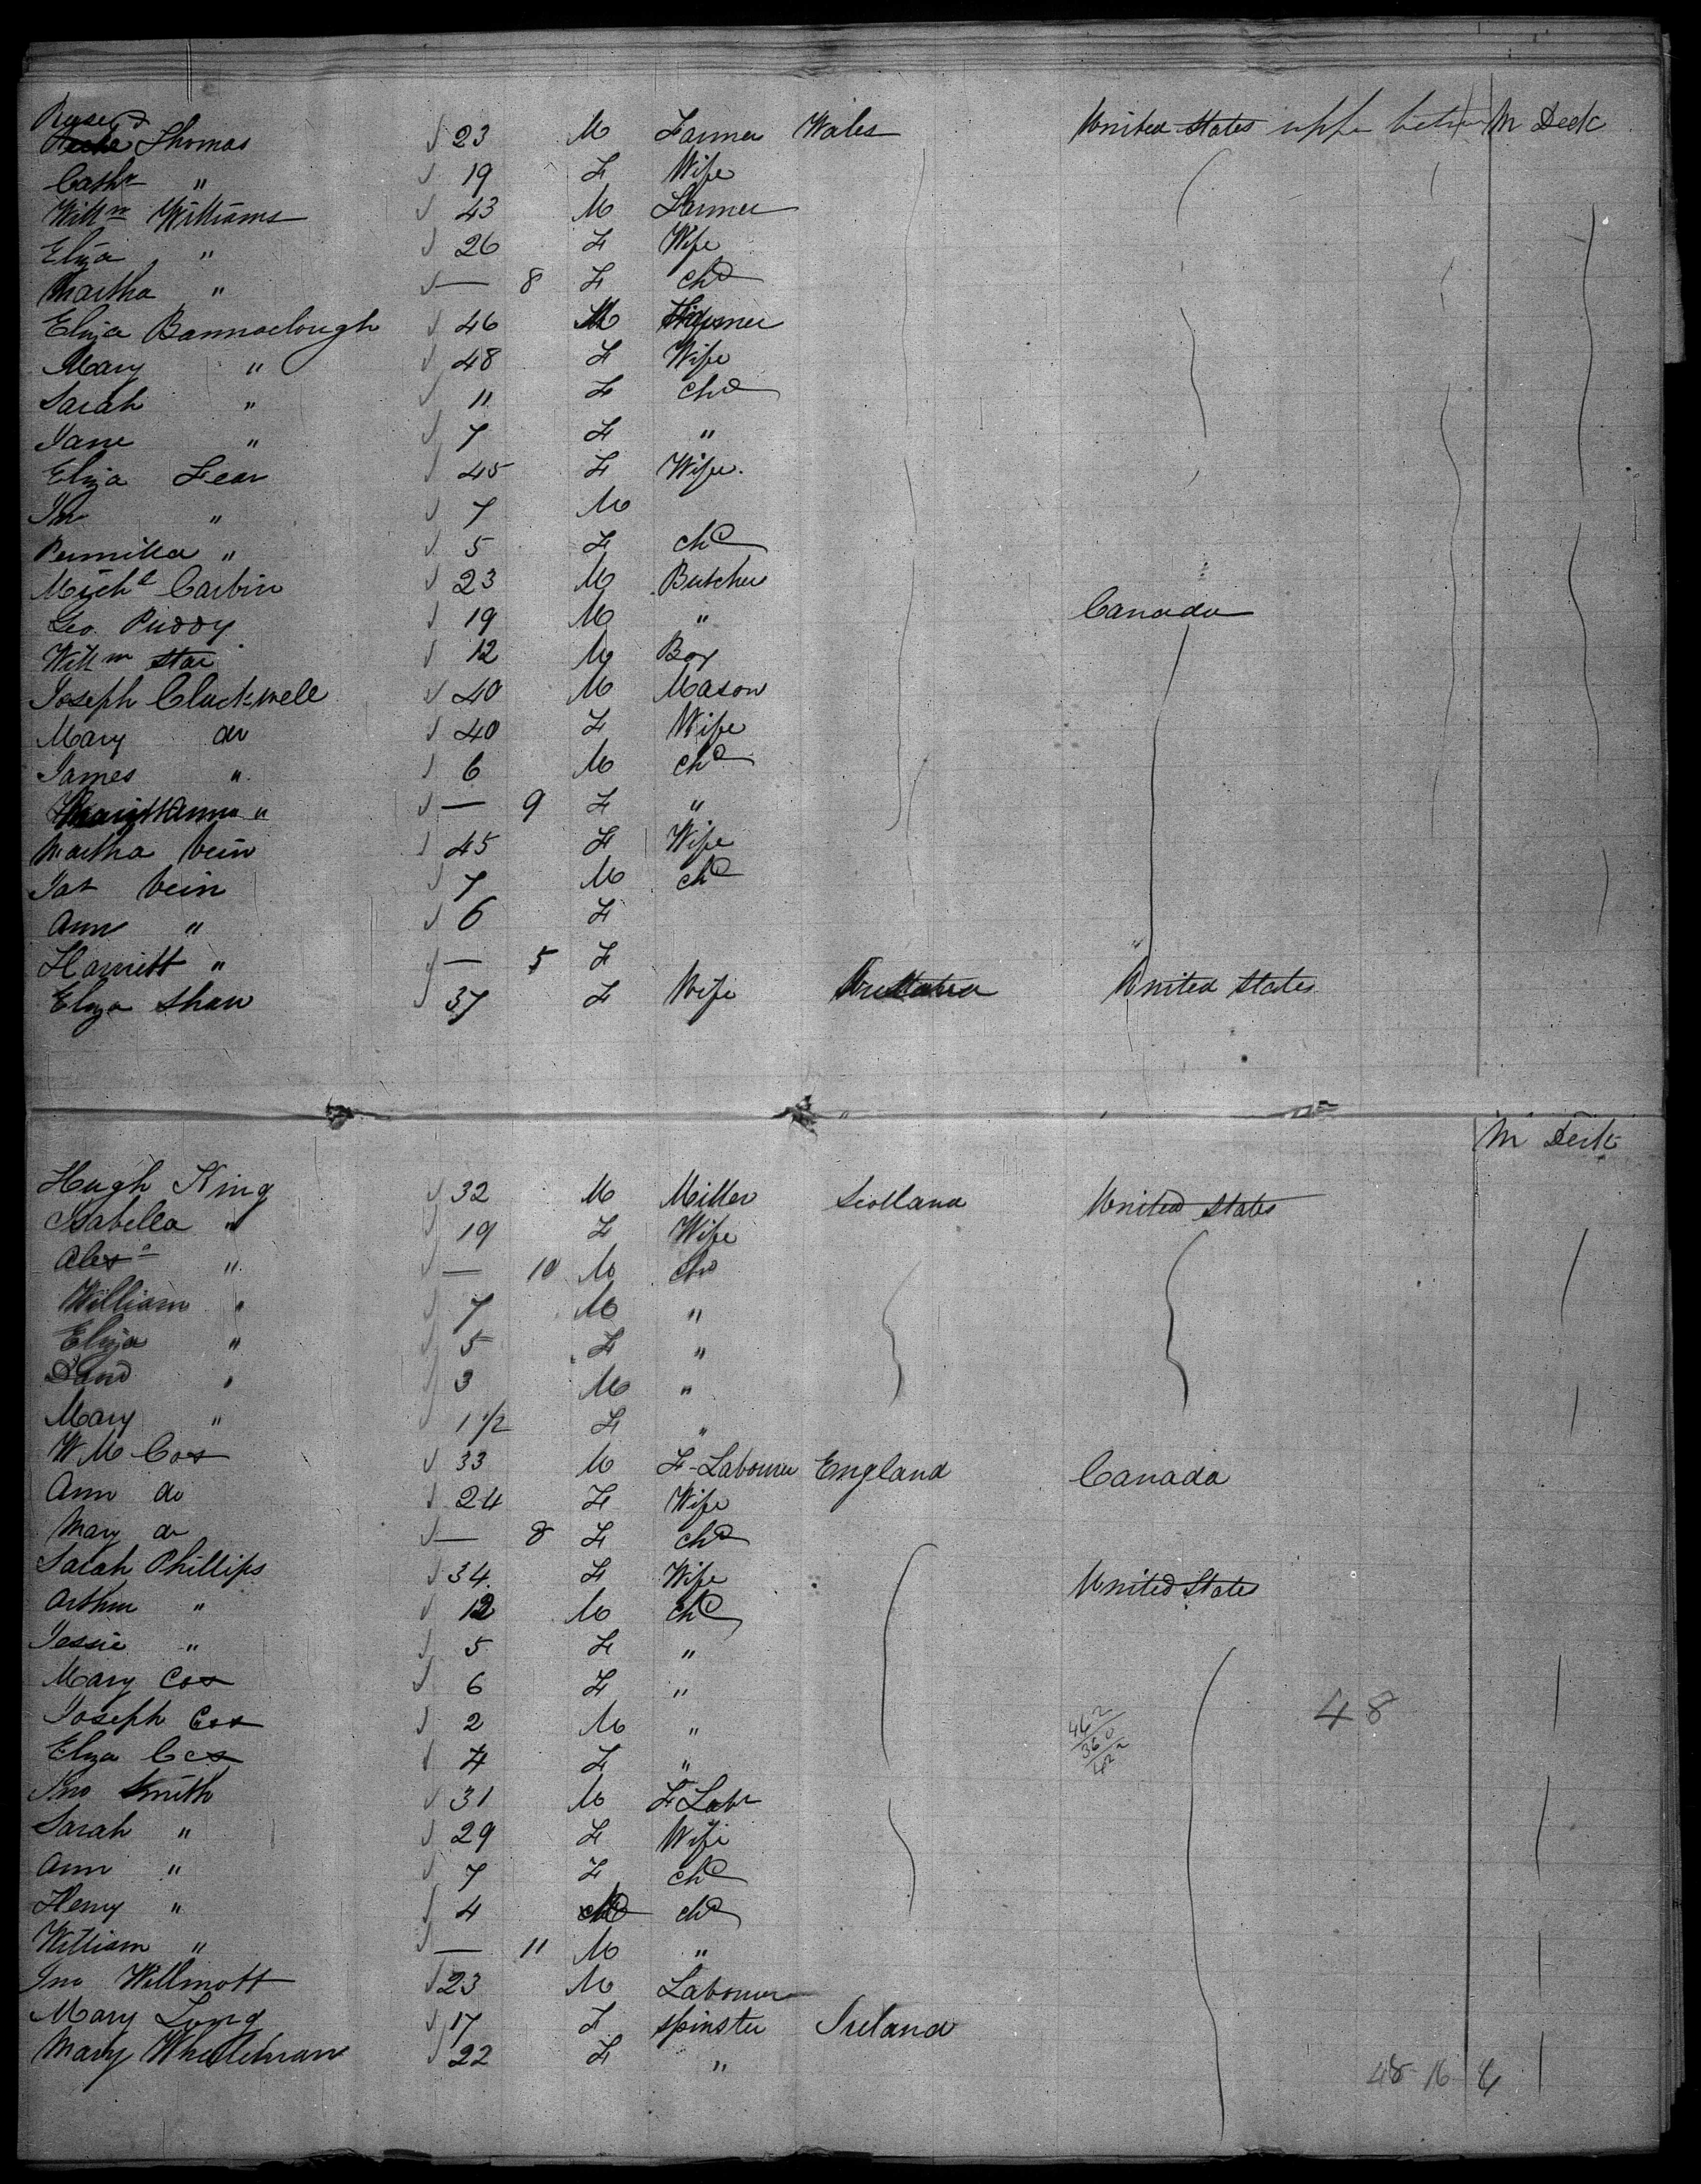 Thomas 23 M Farmer Wales United States upper between M Deck
Cathe " 19 F Wife
Willm Williams 43 M Farmer
Eliza " 26 F Wife
Martha " — 8 F chd
Eliza Bannaclough 46 M
Mary " 48 F Wife
Sarah " 11 F chd
Jane " 7 F "
Eliza Fear 45 F Wife.
Jno " 7 M
Permilla " 5 F chd
Michl Carbin 23 M Butcher
Geo. Puddy 19 M " Canada
Willm Star 12 M Boy
Joseph Cluckwell 40 M Mason
Mary do 40 F Wife
James " 6 M chd
" — 9 F "
Martha Vein 45 F Wife
Vein 7 M chd
Ann " 6 F
Harriett " — 5 F
Eliza Shaw 37 F Wife United States
M Deck
Hugh King 32 M Miller Scotland United States
Isabella " 19 F Wife
Alexr " — 10 M chd
William " 7 M "
Eliza " 5 F "
David " 3 M "
Mary " 1 1/2 F "
W M Cox 33 M F-Labourer England Canada
Ann do 24 F Wife
Mary do — 8 F chd
Sarah Phillips 34 F Wife United States
Arthur " 12 M chd
Jessie " 5 F "
Mary Cox 6 F "
Joseph Cox 2 M " 48
Eliza Cox 4 F "
Jno Smith 31 M F Labr
Sarah " 29 F Wife
Ann " 7 F chd
Henry " 4 chd
William " — 11 M "
Jno Willmott 23 M Labourer
Mary Long 17 F Spinster Ireland
Mary 22 F " 48 16 6